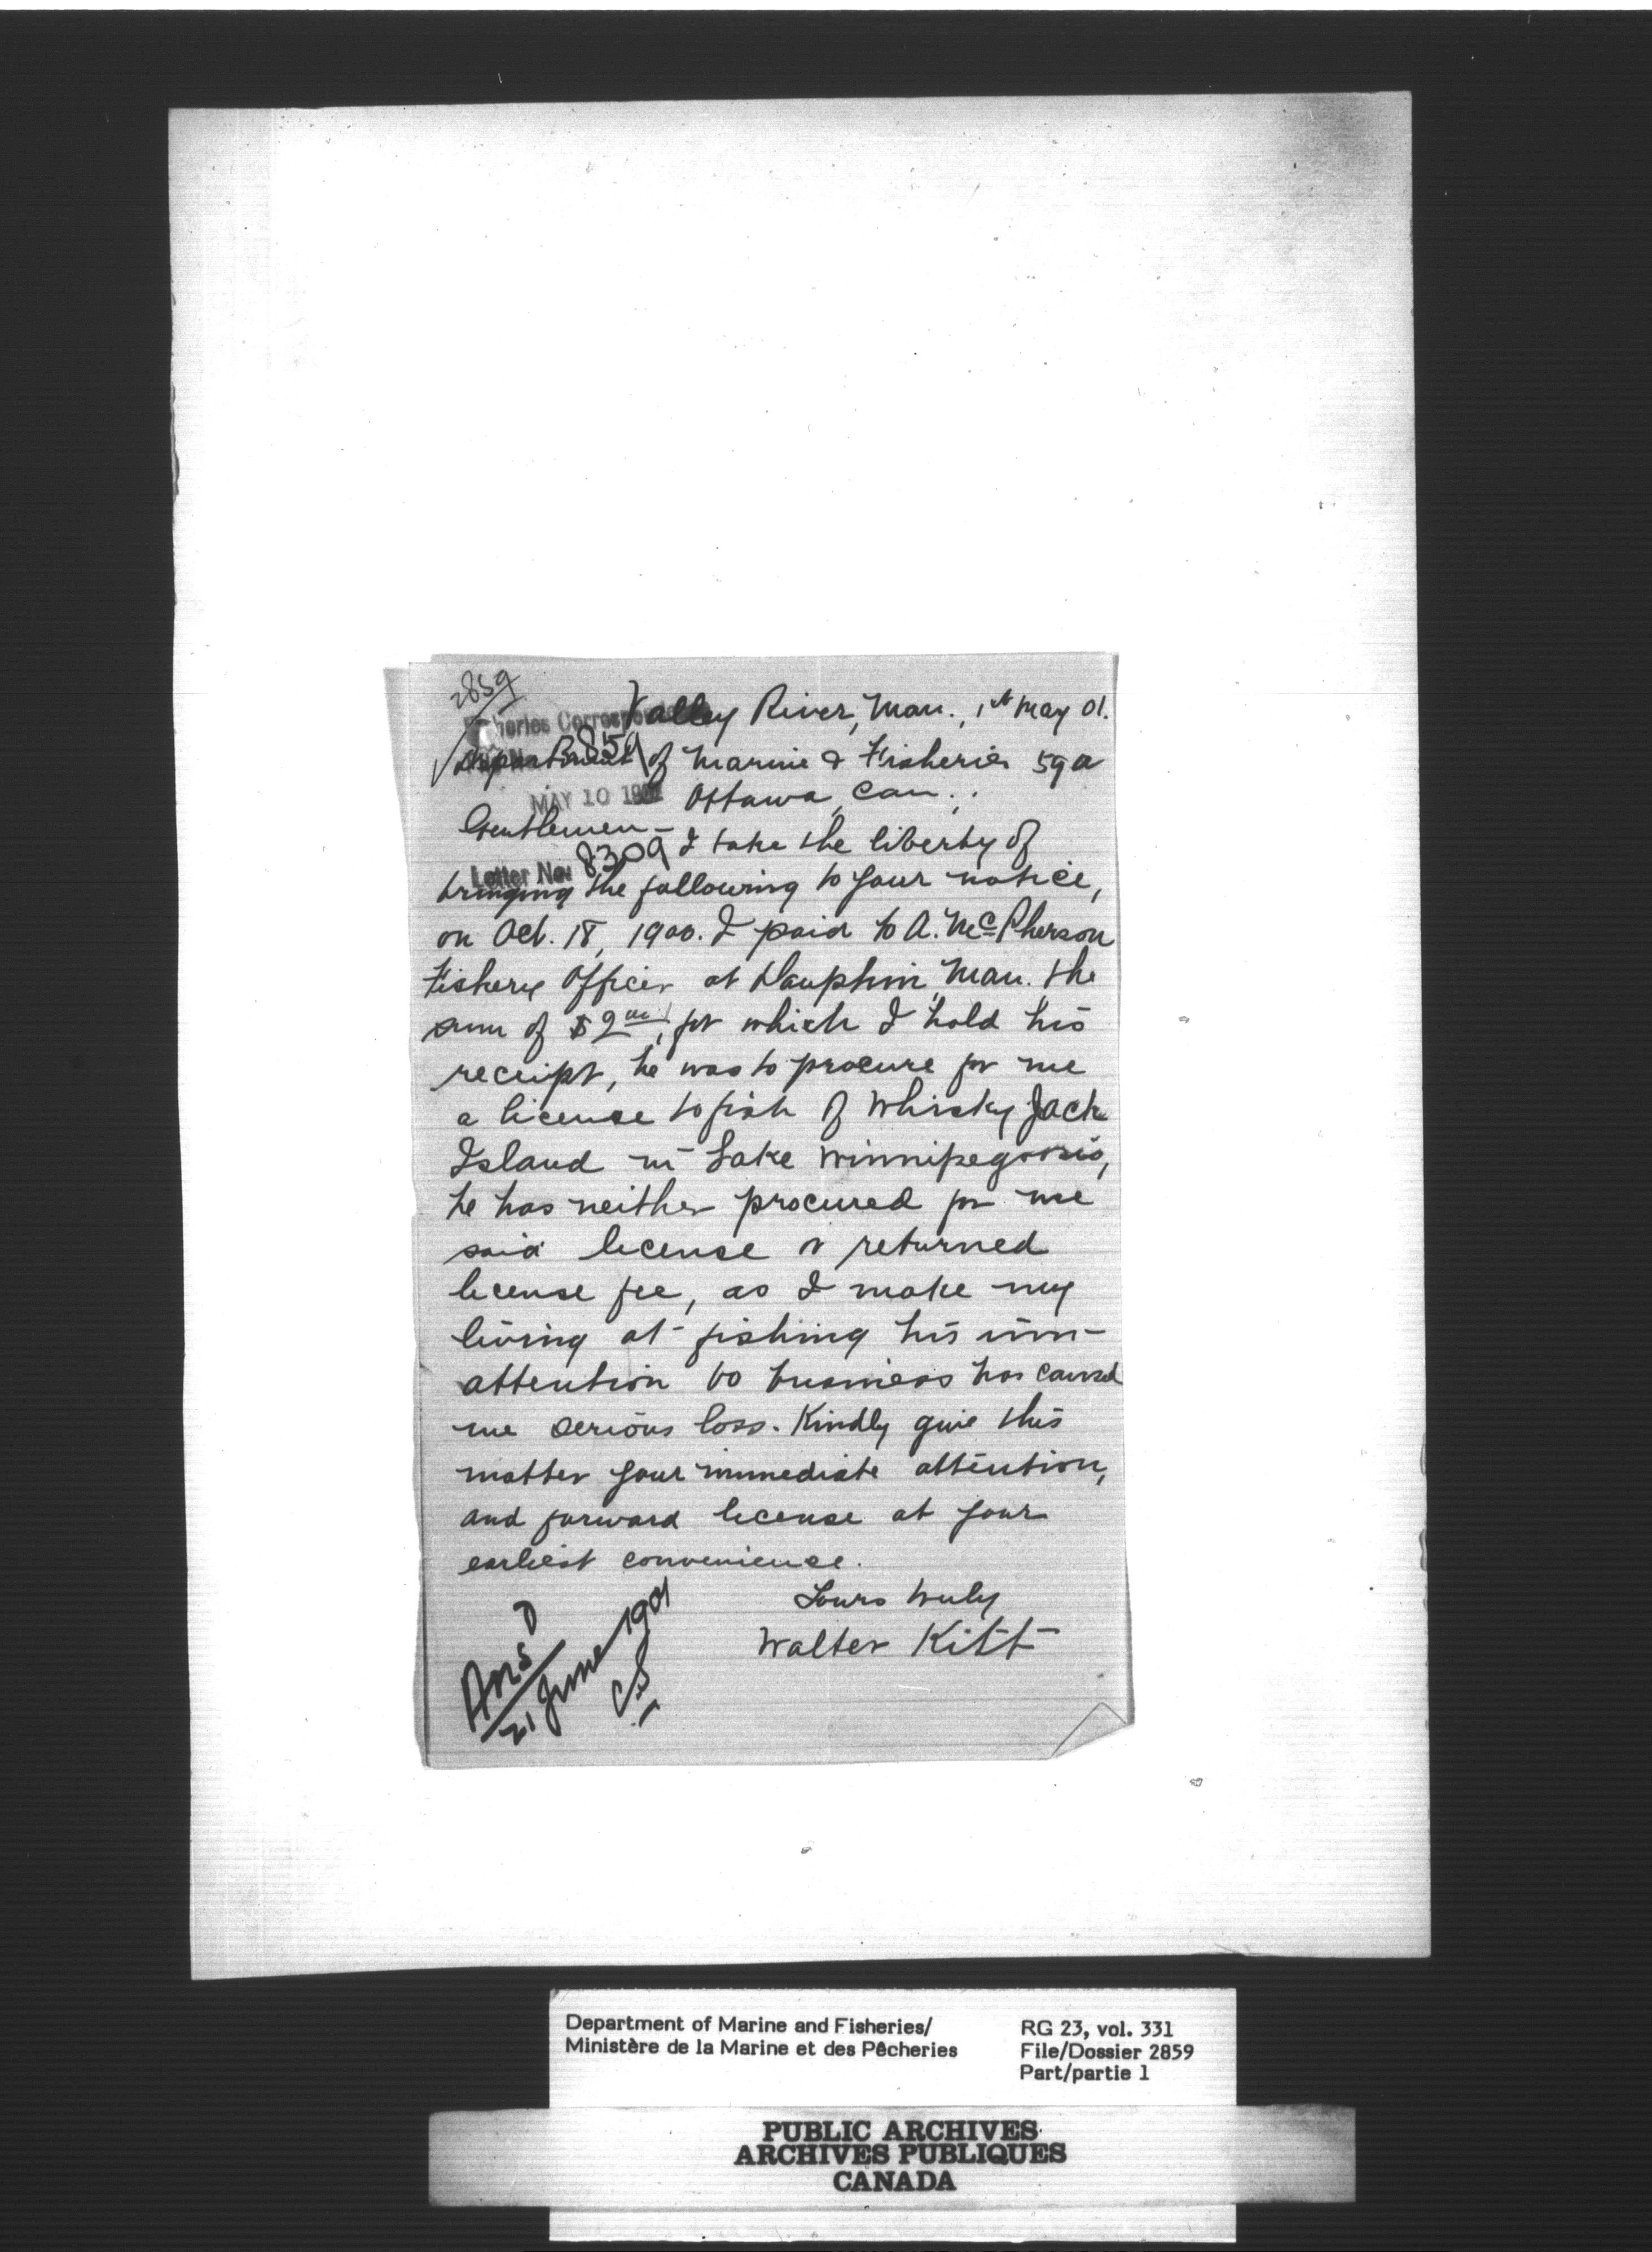 2859
Valley River, Man., 1st May 01.
Fisheries Correspondence
2859
Department of Marine & Fisheries 59a
MAY 10 1901
Ottawa, Can.,
Gentlemen—
I take the liberty of
Letter No: 8309
bringing the following to your notice,
on Oct. 18, 1900. I paid to A. McPherson
Fishery Officer at Dauphin, Man. the
sum of $2.00, for which I hold his
receipt, he was to procure for me
a license to fish of Whisky Jack
Island in Lake Winnipegoosis,
he has neither procured for me
said license or returned
license fee, as I make my
living at fishing his inn-
attention to business has caused
me serious loss. Kindly give this
matter your immediate attention,
and forward license at your
earliest convenience.
Yours truly
Walter Kitt
Ansd
21 June 1901
CS
Department of Marine and Fisheries/
Ministère de la Marine et des Pêcheries
RG 23, vol. 331
File/Dossier 2859
Part/partie 1
PUBLIC ARCHIVES
ARCHIVES PUBLIQUES
CANADA